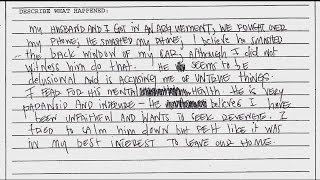 DESCRIBE WHAT HAPPENED:
MY HUSBAND AND I GOT IN AN ARGUEMENT, WE FOUGHT OVER
MY PHONE, HE SMASHED MY PHONE, I BELIEVE HE SMASHED
THE BACK WINDOW OF MY CAR, ALTHOUGH I DID NOT
WITNESS HIM DO THAT. HE SEEMS TO BE
DELUSIONAL AND IS ACCUSING ME OF UNTRUE THINGS.
I FEAR FOR HIS MENTAL HEALTH. HE IS VERY
PARANOID AND INSECURE - HE BELIEVES I HAVE
BEEN UNFAITHFUL AND WANTS TO SEEK REVENGE. I
TRIED TO CALM HIM DOWN BUT FELT LIKE IT WAS
IN MY BEST INTEREST TO LEAVE OUR HOME.